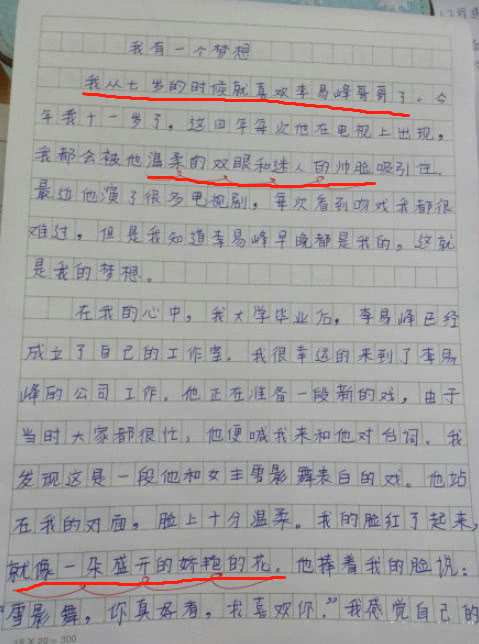 我有一个梦想
我从七岁的时候就喜欢李易峰哥哥了，今
年我十一岁了，这四年每次他在电视上出现，
我都会被他温柔的双眼和迷人的帅脸吸引住，
最近他演了很多电视剧，每次看到吻戏我都很
难过，但是我知道李易峰早晚都是我的，这就
是我的梦想。
在我的心中，我大学毕业后，李易峰已经
成立了自己的工作室，我很幸运的来到了李易
峰的公司工作，他正在准备一段新的戏，由于
当时大家都很忙，他便喊我来和他对台词，我
发现这是一段他和女主雪影舞表白的戏。他站
在我的对面，脸上十分温柔。我的脸红了起来，
就像一朵盛开的娇艳的花，他捧着我的脸说：
“雪影舞，你真好看，我喜欢你。”我感觉自己的
= 300